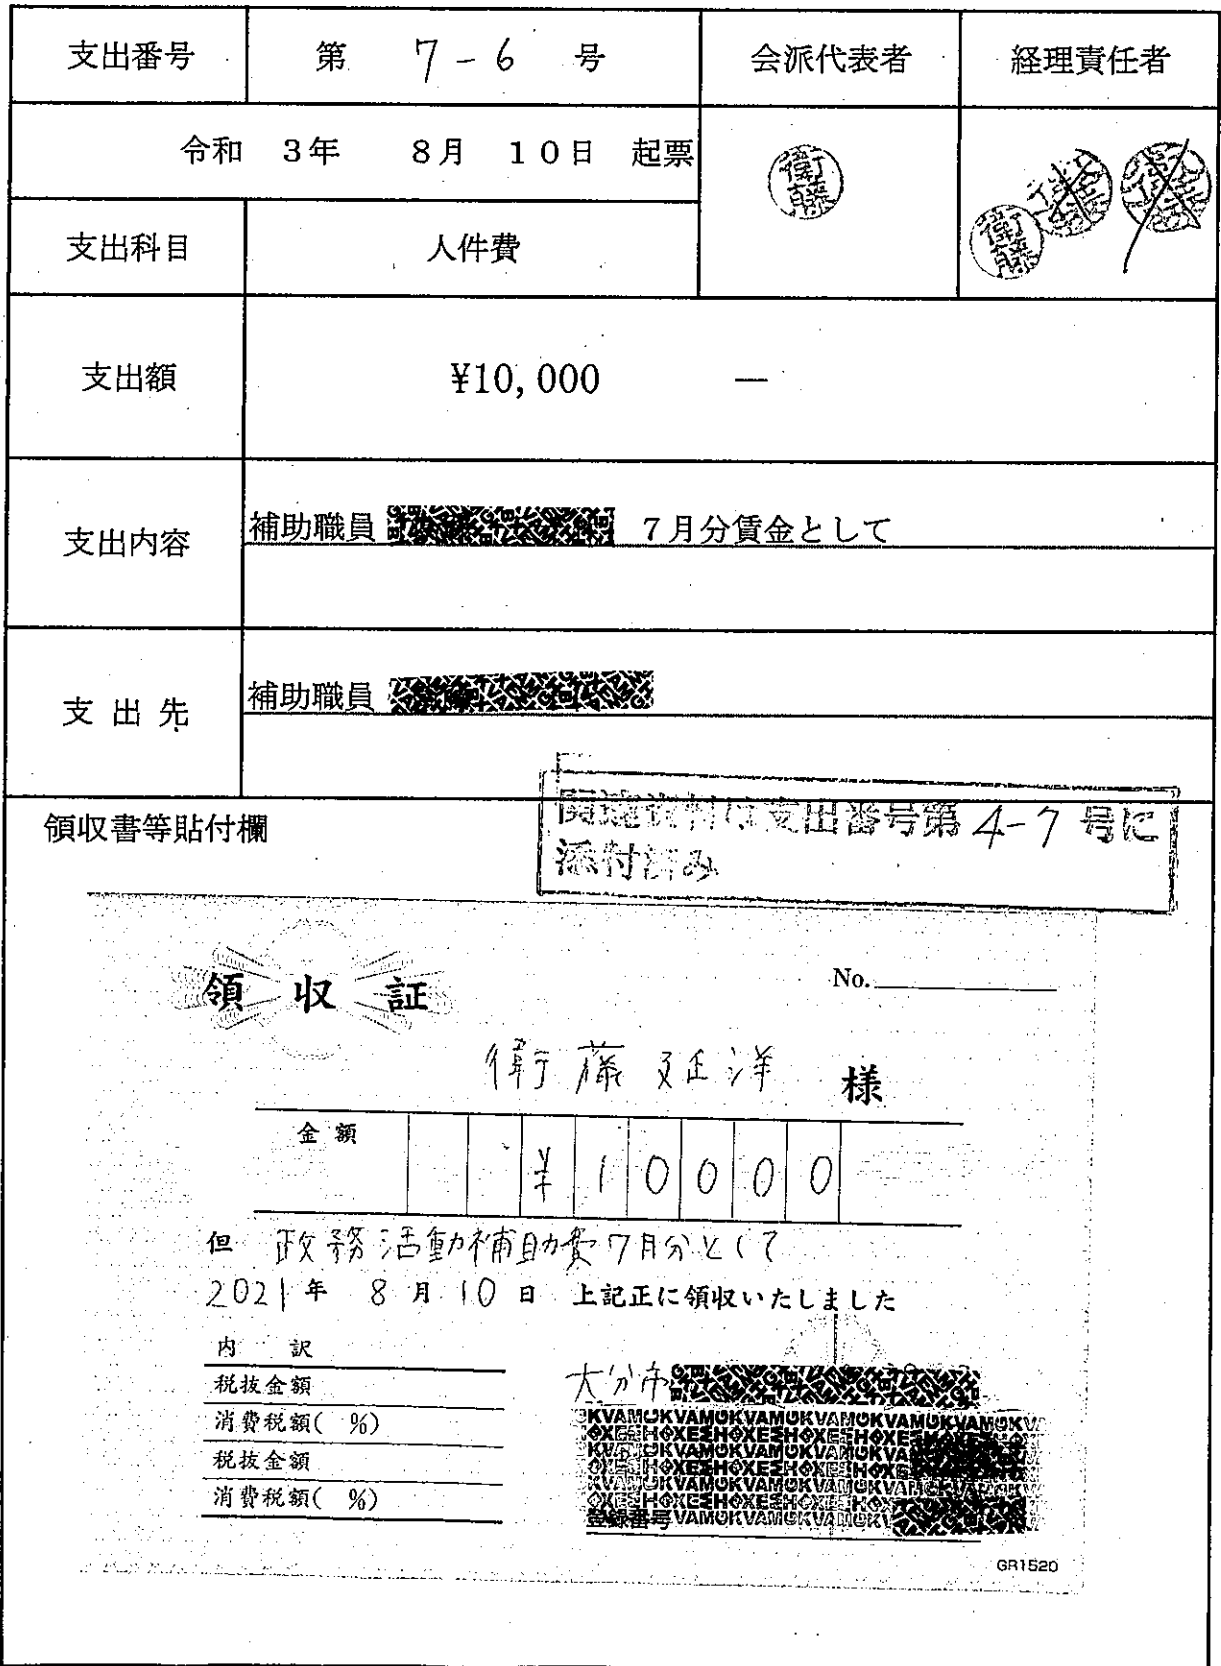 支出番号 第 7-6 号 会派代表者 経理責任者
令和 3年 8月 10日 起票
衛藤
衛藤
支出科目 人件費
支出額 ¥10,000 ―
支出内容 補助職員 7月分賃金として
支出先 補助職員
関連資料は支出番号第 4-7 号に
添付済み
領収書等貼付欄
領収証 No.
衛藤延洋 様
金額 ¥10000
但 政務活動補助費7月分として
2021年 8月 10日 上記正に領収いたしました
内訳
税抜金額
大分市
消費税額( %)
税抜金額
消費税額( %)
登録番号
GR1520